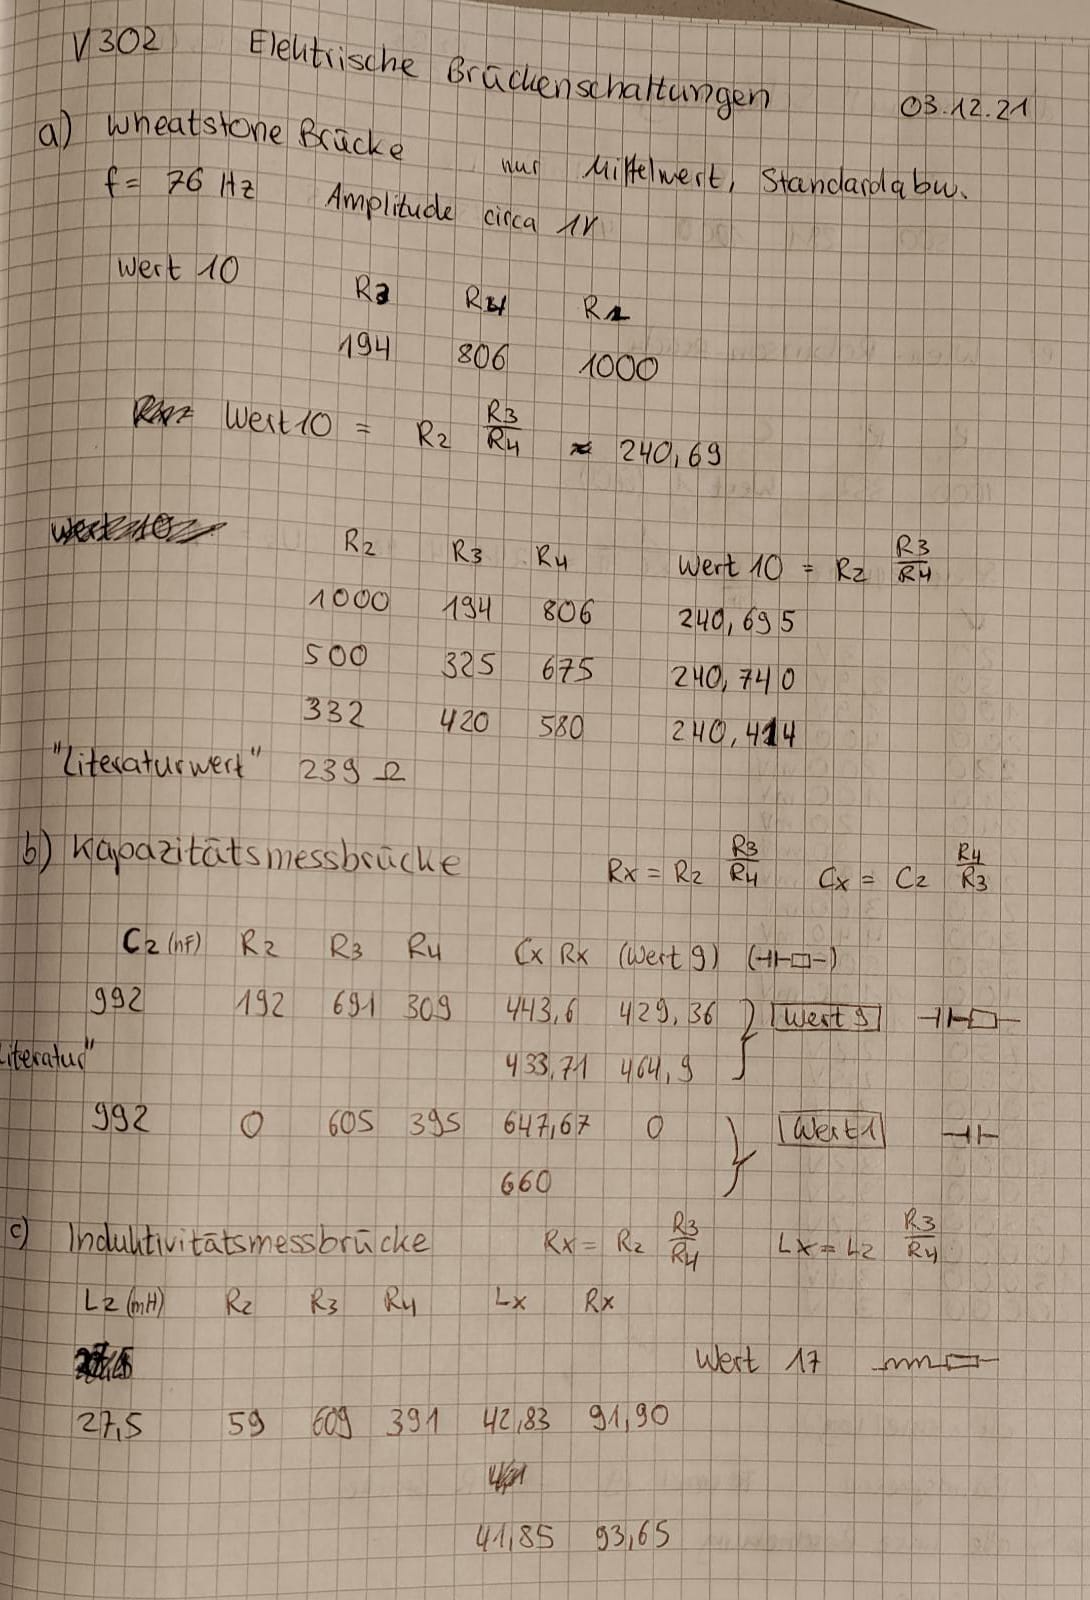 V302 Elektrische Brückenschaltungen 03.12.21
a) Wheatstone Brücke nur Mittelwert, Standardabw.
f = 76 Hz Amplitude circa 1V
Wert 10 R3 R4 R2
194 806 1000
Wert 10 = R2 R3/R4 ≈ 240,69
R2 R3 R4 Wert 10 = R2 R3/R4
1000 194 806 240,695
500 325 675 240,740
332 420 580 240,414
"Literaturwert" 239 Ω
b) Kapazitätsmessbrücke Rx = R2 R3/R4 Cx = C2 R4/R3
C2 (nF) R2 R3 R4 Cx Rx (Wert 9)
992 192 691 309 443,6 429,36 Wert 9
Literatur" 433,71 464,9
992 0 605 395 647,67 0 Wert 1
660
c) Induktivitätsmessbrücke Rx = R2 R3/R4 Lx = L2 R3/R4
L2 (mH) R2 R3 R4 Lx Rx
Wert 17
27,5 59 609 391 42,83 91,90
41,85 93,65